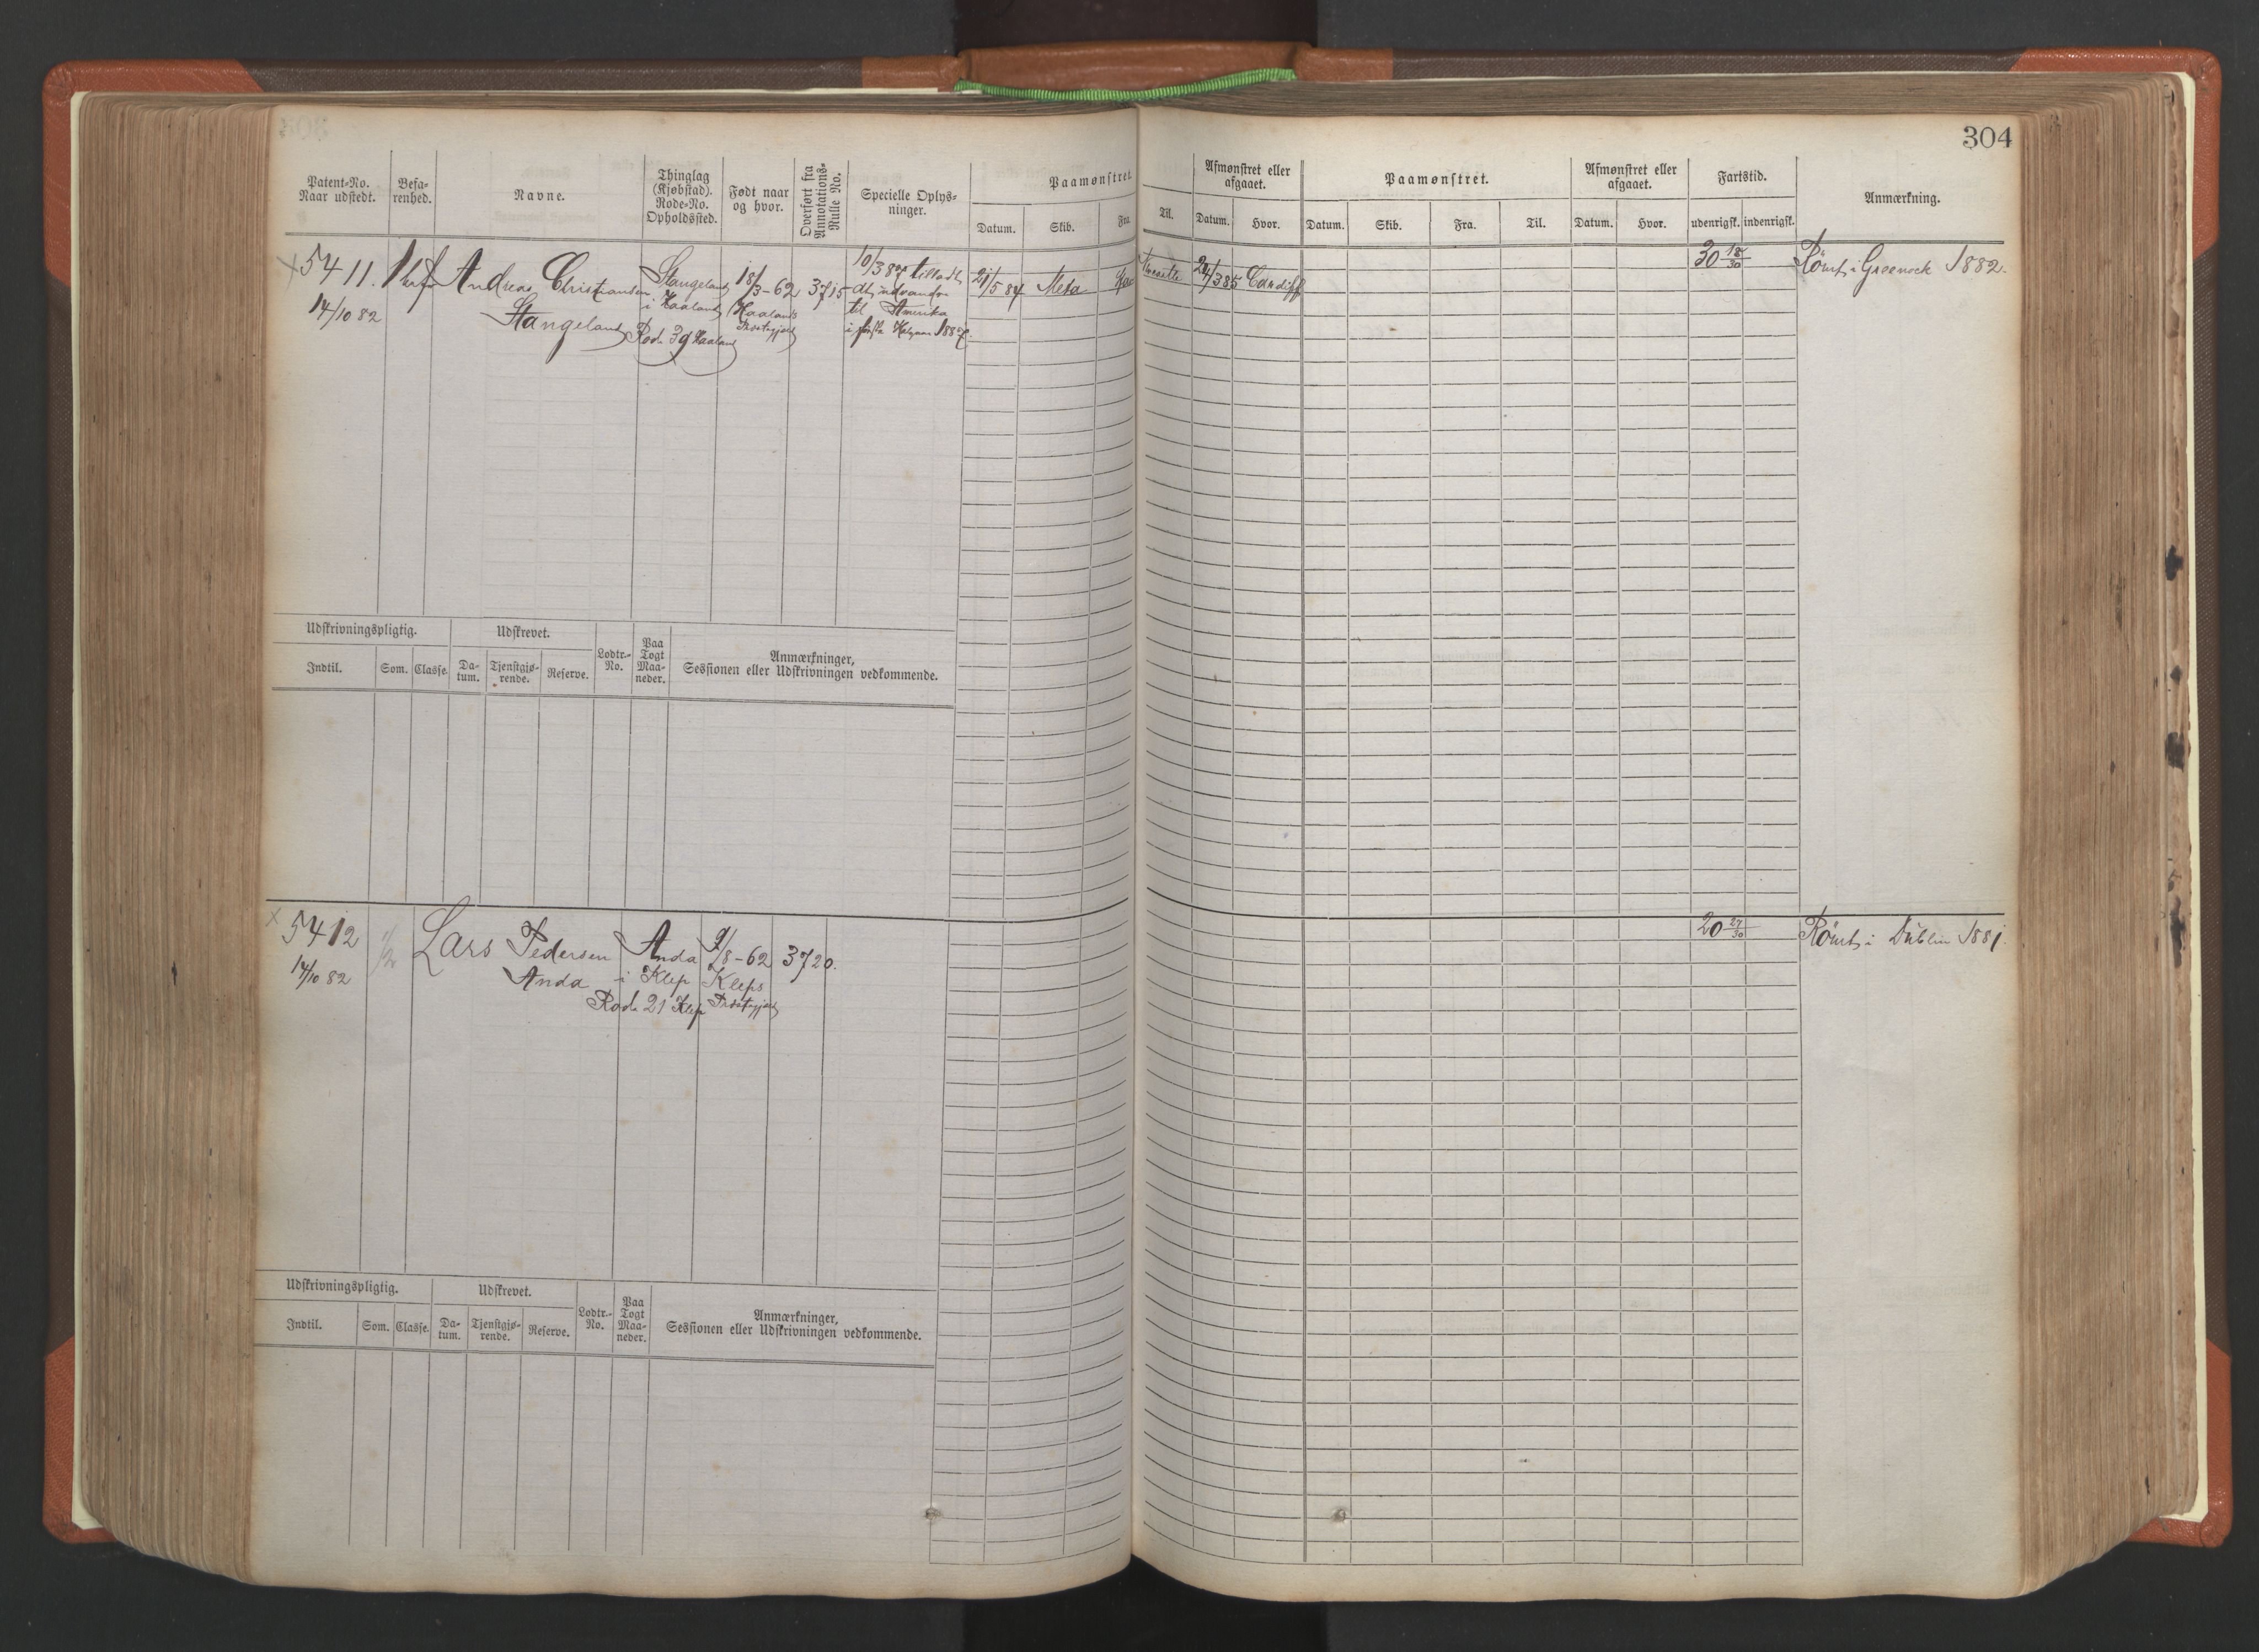 304
Patent=No. Naar udstedt.
Befa=renhed.
Navne.
Thinglag (Kjøbstad). Rode=No. Opholdssted.
Født naar og hvor.
Overført fra Annotations=Rulle No.
Specielle Oplys=ninger.
Paamønstret.
Datum. Skib. Fra. Til.
Afmønstret eller afgaaet.
Datum. Hvor.
Paamønstret.
Datum. Skib. Fra. Til.
Afmønstret eller afgaaet.
Datum. Hvor.
Fartstid.
udenrigsk. indenrigsk.
Anmærkning.
5411.
14/10 82
Andreas Christiansen
Stangeland
Stangeland
i Haaland
Rode 39 Haaland
18/3-62
Haalands
Præstegjæld
3715
10/3 87 tilladt
at udvandre
til Amerika
i første Halvaar 1887.
21/5 84 Meta
24/3 85 Cardiff
30 18/30
Römt i Greenock 1882.
Udskrivningspligtig.
Indtil. Som. Classe.
Udskrevet.
Da=tum. Tjenstgjø=rende. Reserve.
Lodtr.=No.
Paa Togt Maa=neder.
Anmærkninger,
Sessionen eller Udskrivningen vedkommende.
5412
14/10 82
1/2
Lars Pedersen
Anda
Anda
i Klep
Rode 21 Klep
9/8-62
Kleps
Præstegjæld
3720.
20 27/30
Römt i Dublin 1881.
Udskrivningspligtig.
Indtil. Som. Classe.
Udskrevet.
Da=tum. Tjenstgjø=rende. Reserve.
Lodtr.=No.
Paa Togt Maa=neder.
Anmærkninger,
Sessionen eller Udskrivningen vedkommende.